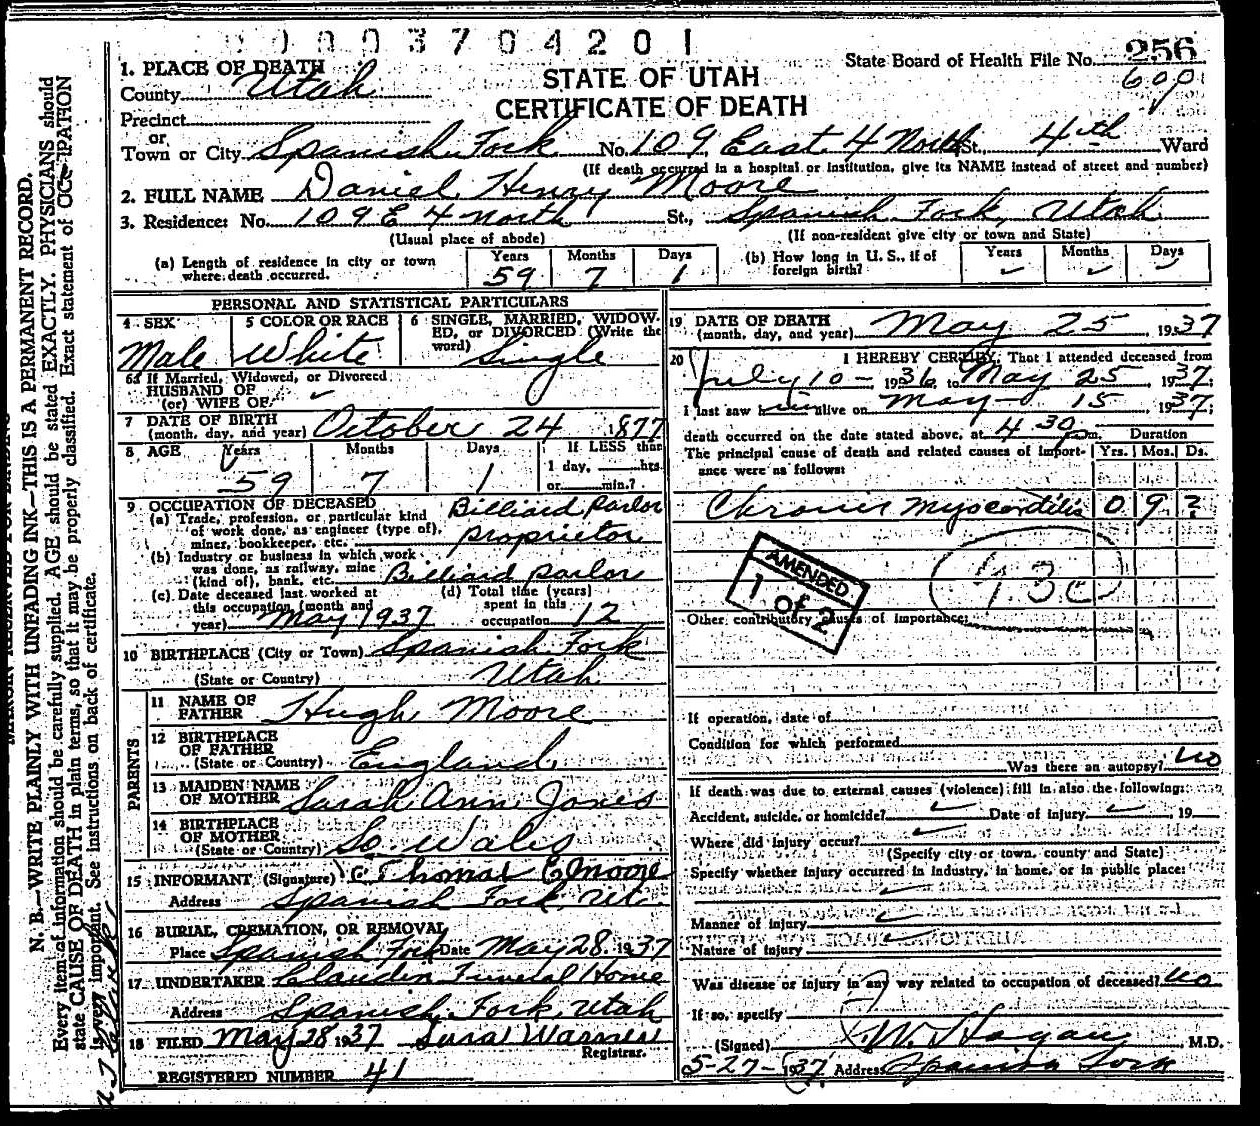 00003704201
State Board of Health File No. 256
609
1. PLACE OF DEATH
STATE OF UTAH
County Utah
CERTIFICATE OF DEATH
Precinct
or
Town or City Spanish Fork No. 109 East 4 North St., 4th Ward
(If death occurred in a hospital or institution, give its NAME instead of street and number)
2. FULL NAME Daniel Henry Moore
3. Residence: No. 109 E 4 North St., Spanish Fork, Utah
(Usual place of abode) (If non-resident give city or town and State)
(a) Length of residence in city or town where death occurred. Years 59 Months 7 Days 1
(b) How long in U. S., if of foreign birth? Years ✓ Months ✓ Days ✓
PERSONAL AND STATISTICAL PARTICULARS
4 SEX Male
5 COLOR OR RACE White
6 SINGLE, MARRIED, WIDOW-
ED, or DIVORCED (Write the
word) Single
6a If Married, Widowed, or Divorced
HUSBAND OF
(or) WIFE OF ✓
7 DATE OF BIRTH
(month, day, and year) October 24 1877
8 AGE Years 59 Months 7 Days 1
If LESS than
1 day, hrs.
or min.?
9 OCCUPATION OF DECEASED Billiard Parlor
(a) Trade, profession, or particular kind
of work done, as engineer (type of),
miner, bookkeeper, etc. proprietor
(b) Industry or business in which work
was done, as railway, mine
(kind of), bank, etc. Billiard parlor
(c) Date deceased last worked at
this occupation (month and
year) May 1937
(d) Total time (years)
spent in this
occupation 12
10 BIRTHPLACE (City or Town) Spanish Fork
(State or Country) Utah
PARENTS
11 NAME OF
FATHER Hugh Moore
12 BIRTHPLACE
OF FATHER
(State or Country) England
13 MAIDEN NAME
OF MOTHER Sarah Ann Jones
14 BIRTHPLACE
OF MOTHER
(State or Country) So. Wales
15 INFORMANT (Signature) Thomas E Moore
Address Spanish Fork, Ut.
16 BURIAL, CREMATION, OR REMOVAL
Place Spanish Fork Date May 28, 1937
17 UNDERTAKER Claudin Funeral Home
Address Spanish Fork, Utah
18 FILED May 28 1937 Warner
Registrar.
REGISTERED NUMBER 41
19 DATE OF DEATH
(month, day, and year) May 25 1937
20 I HEREBY CERTIFY, That I attended deceased from
July 10 - 1936, to May 25, 1937;
I last saw him alive on May 15 1937;
death occurred on the date stated above, at 4 30 pm. Duration
The principal cause of death and related causes of import-
ance were as follows: Yrs. Mos. Ds.
Chronic Myocarditis 0 9 ?
AMENDED
1 of 2
93c
Other contributory causes of importance:
If operation, date of
Condition for which performed
Was there an autopsy? no
If death was due to external causes (violence) fill in also the following:
Accident, suicide, or homicide? ✓ Date of injury ✓, 19
Where did injury occur? ✓
(Specify city or town, county and State)
Specify whether injury occurred in industry, in home, or in public place:
✓
Manner of injury ✓
Nature of injury ✓
Was disease or injury in any way related to occupation of deceased? no
If so, specify
(Signed) W. Hagan, M.D.
5-27-1937 Address Spanish Fork
N. B.—WRITE PLAINLY WITH UNFADING INK—THIS IS A PERMANENT RECORD.
Every item of information should be carefully supplied. AGE should be stated EXACTLY. PHYSICIANS should
state CAUSE OF DEATH in plain terms, so that it may be properly classified. Exact statement of OCCUPATION
is very important. See instructions on back of certificate.